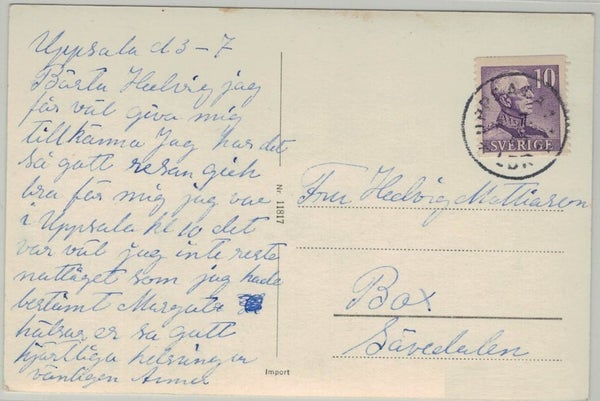 Uppsala d 3-7
Bästa Hedvig jag
får väl giva mig
tillkänna Jag har det
så gott resan gick
bra för mig jag var
i Uppsala kl 10 det
var väl jag inte reste
nattåget som jag hade
bestämt Margata
hälsar er så gott
hjärtliga helsningar
vänligen Anna
Nr 11817
Import
10
SVERIGE
UPPSALA
LBR
Fru Hedvig Mattiasson
Box
Sävedalen